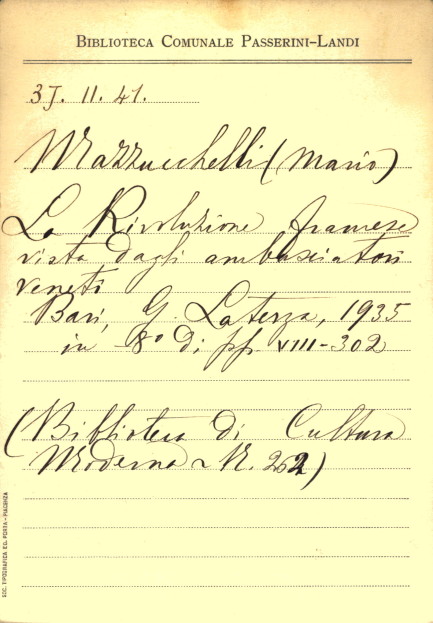 BIBLIOTECA COMUNALE PASSERINI-LANDI
3J. II. 41.
Mazzucchelli (Mario)
La Rivoluzione francese
vista dagli ambasciatori
veneti
Bari, G. Laterza, 1935
in 8° di pp VIII-302
(Biblioteca di Cultura
Moderna N. 262)
SOC. TIPOGRAFICA ED. PORTA - PIACENZA